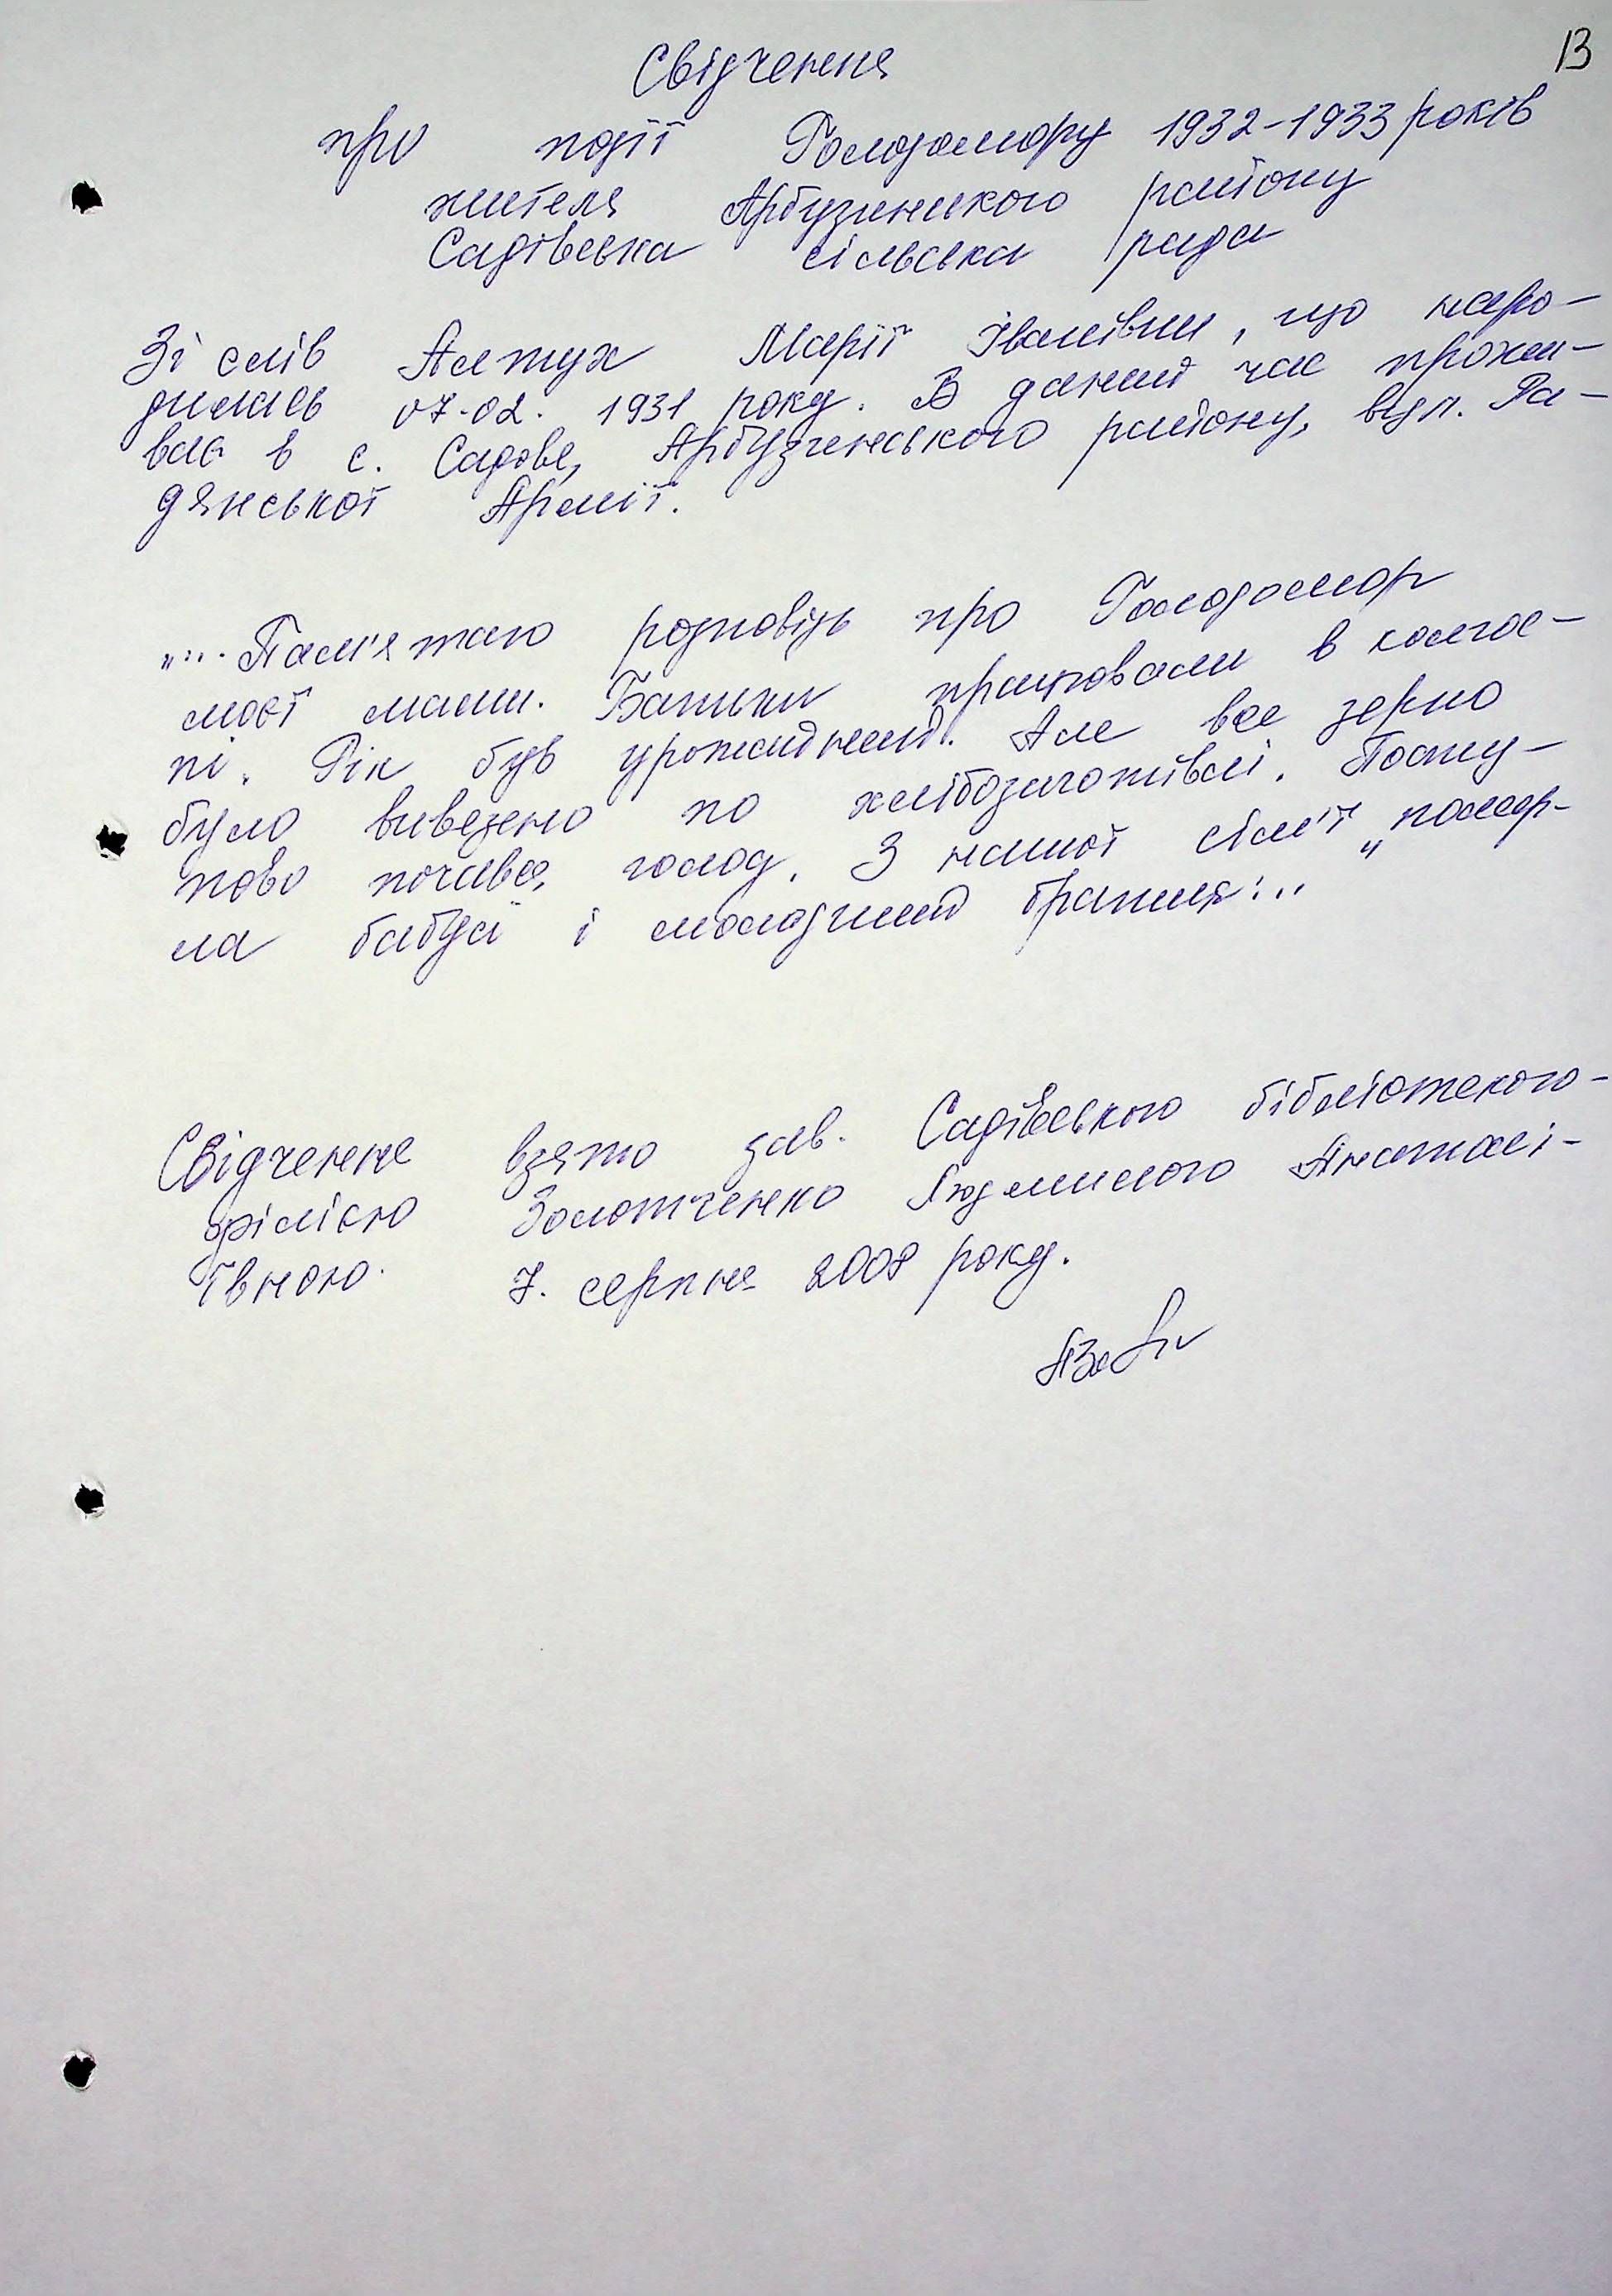 13
Свідчення
про події Голодомору 1932-1933 років
жителя Арбузинського району
Садівська сільська рада
Зі слів Алтух Марії Іванівни, що наро-
дилась 07.02. 1931 року. В даний час прожи-
ває в с. Садове, Арбузинського району, вул. Ра-
дянської Армії.
"... Пам'ятаю розповідь про Голодомор
моєї мами. Батьки працювали в колгос-
пі. Рік був урожайний. Але все зерно
було вивезено по хлібозаготівлі. Посту-
пово почався голод. З нашої сім'ї помер-
ла бабуся і молодший братик..."
Свідчення взято зав. Садівською бібліотекою-
філією Золотченко Людмилою Анатолі-
ївною. 7. серпня 2008 року.